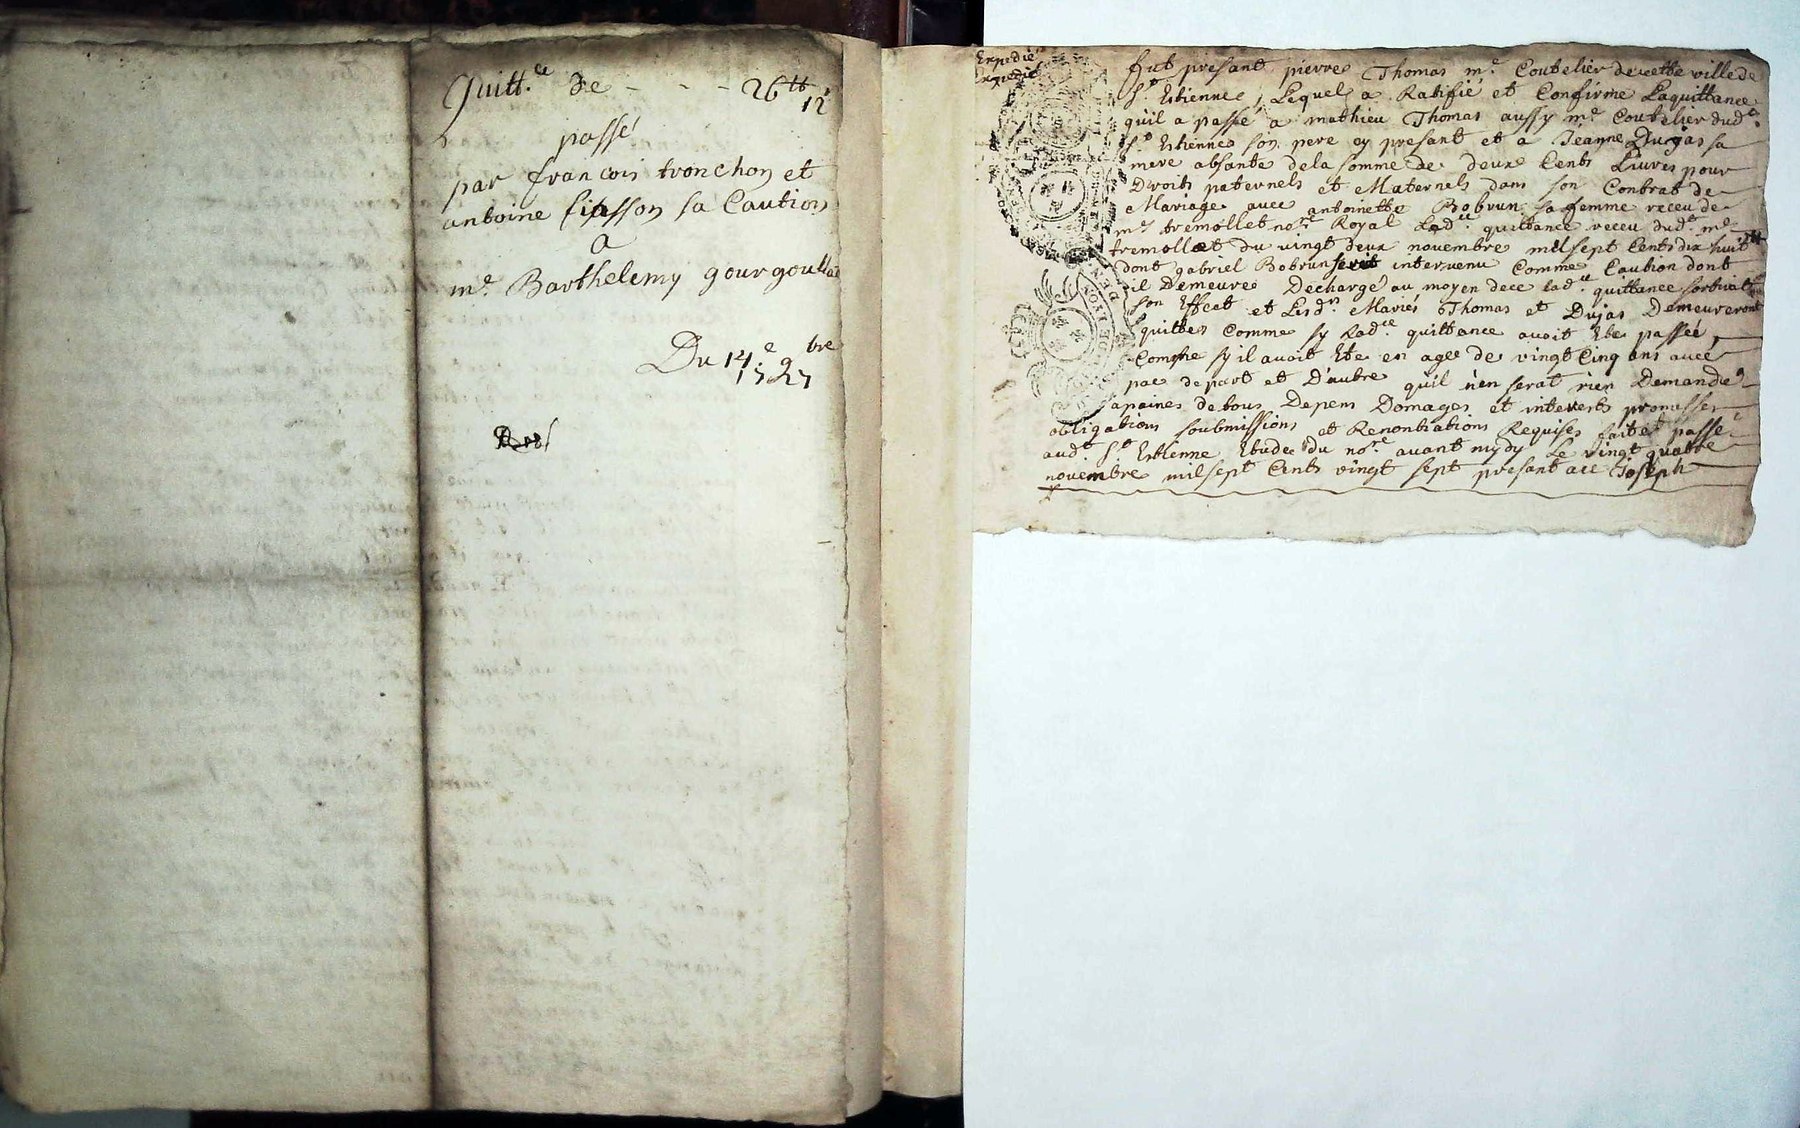 Quitt.ce de - - - 26tt
12
passé
par francois tronchon et
antoine fiasson sa Caution
a
mr. Barthelemy gourgoulhat
Du 14e 9bre
1727
Expedié
Expedié
fut présant pierre Thomas me. Coutelier de cette ville de
St Estienne, Lequel a Ratifié et Confirmé Laquittance
quil a passé a mathieu Thomas aussy me. Coutelier dud.
St Estienne son pere cy présant et a Jeanne Dujas sa
mere absante dela somme de deux Cents Livres pour
Droits paternels et Maternels dans son Contrat de
Mariage avec antoinette Bobrun sa femme receu de
me tremollet no.re Royal Lad.te quittance receu dud. me
tremollet du vingt deux novembre mil sept Cents dix huit
dont gabriel Bobrun serit intervenu Comme Caution dont
il Demeure Decharge au moyen dece Lad.te quittance sortirat
son Effect et Lesd. Mariés Thomas et Dujas Demeureront
quittes Comme sy Lad.te quittance avoit Ete passée
Comme sy il avoit Ete en agee de vingt Cinq ans avec
pac de part et D'autre quil n'en serat rien Demandé
apaines de tous Depens Domages et interests promesses
obligations soubmissions et Renontiations Requises fait et passé
aud. St Estienne Etude du no.re avant midy Le vingt quatre
novembre mil sept Cents vingt sept présant a ce Joseph